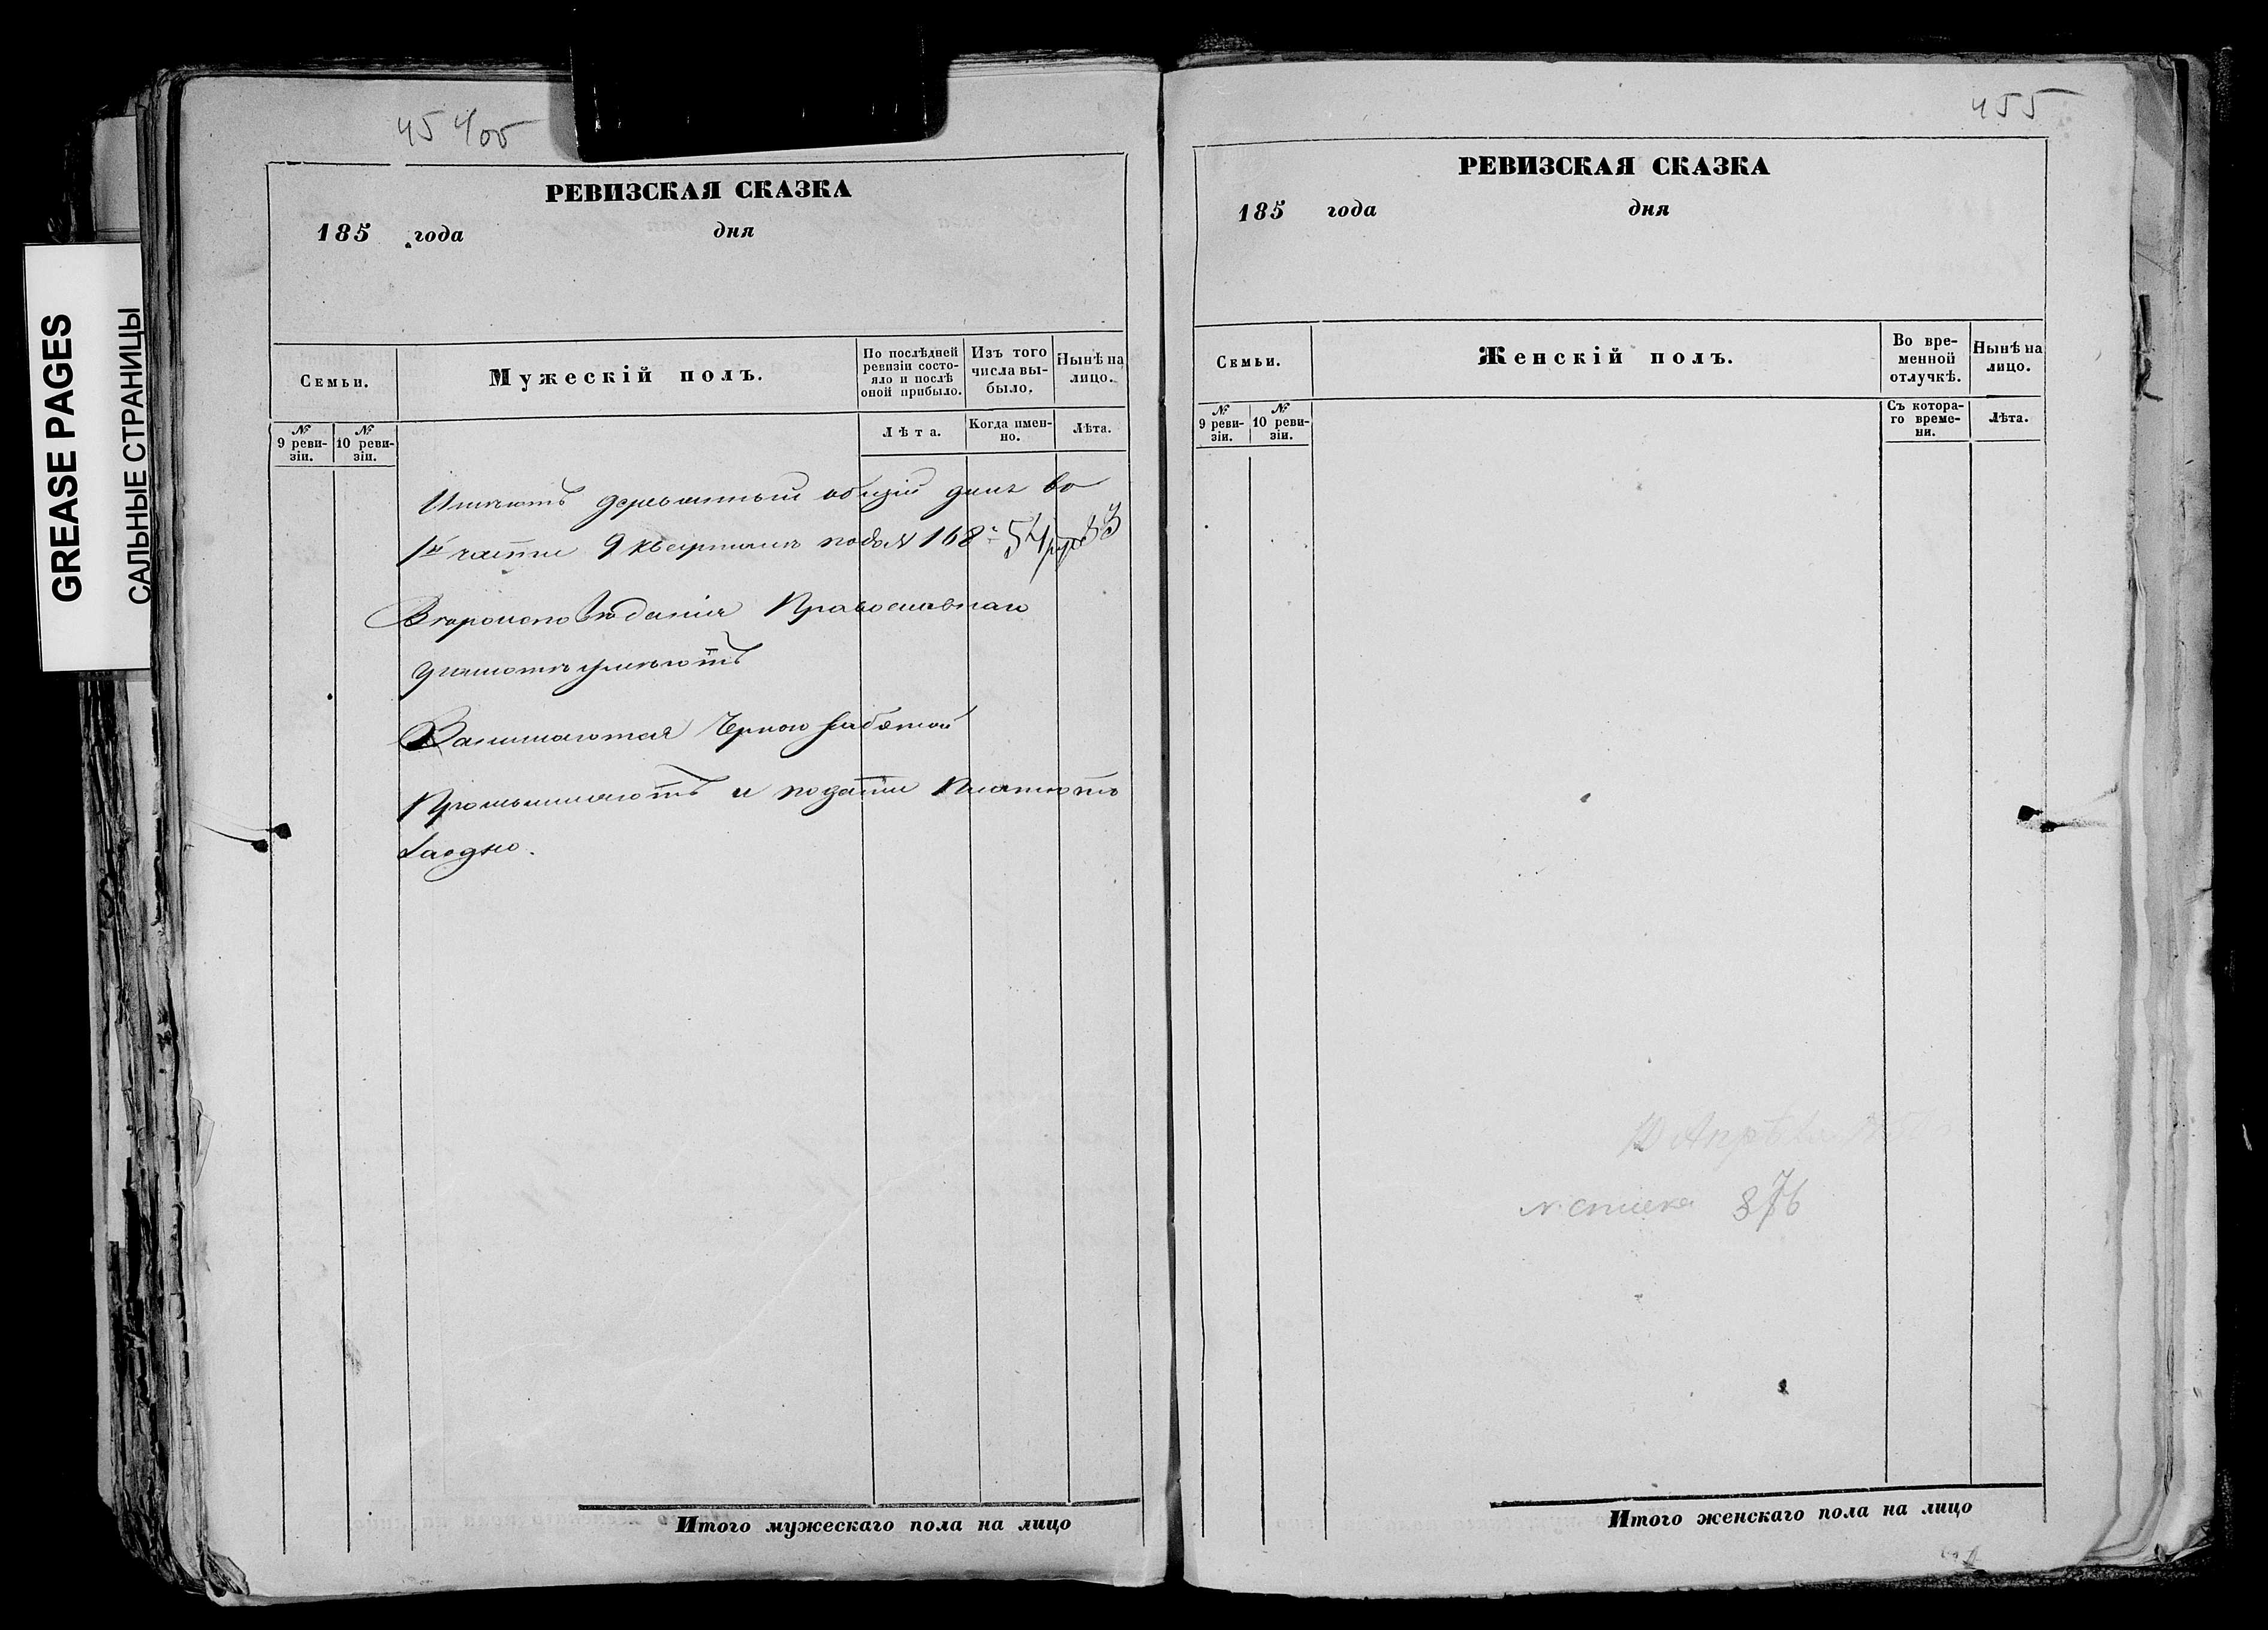 GREASE PAGES
САЛЬНЫЕ СТРАНИЦЫ
РЕВИЗСКАЯ СКАЗКА
185 года дня
Семьи.
Мужескій полъ.
По послѣдней ревизіи состояло и послѣ оной прибыло.
Изъ того числа выбыло.
Нынѣ на лицо.
№ 9 ревизіи.
№ 10 ревизіи.
Лѣта.
Когда именно.
Лѣта.
Имѣютъ деревянный общій домъ во
1й части 9 квартала подъ № 168
Вѣроисповѣданія Православнаго
грамотѣ умѣютъ
Занимаются Черною работой
Промышляютъ и подати Платютъ
Заодно.
Итого мужескаго пола на лицо
455
РЕВИЗСКАЯ СКАЗКА
185 года дня
Семьи.
Женскій полъ.
Во временной отлучкѣ.
Нынѣ на лицо.
№ 9 ревизіи.
№ 10 ревизіи.
Съ котораго времени.
Лѣта.
876
Итого женскаго пола на лицо